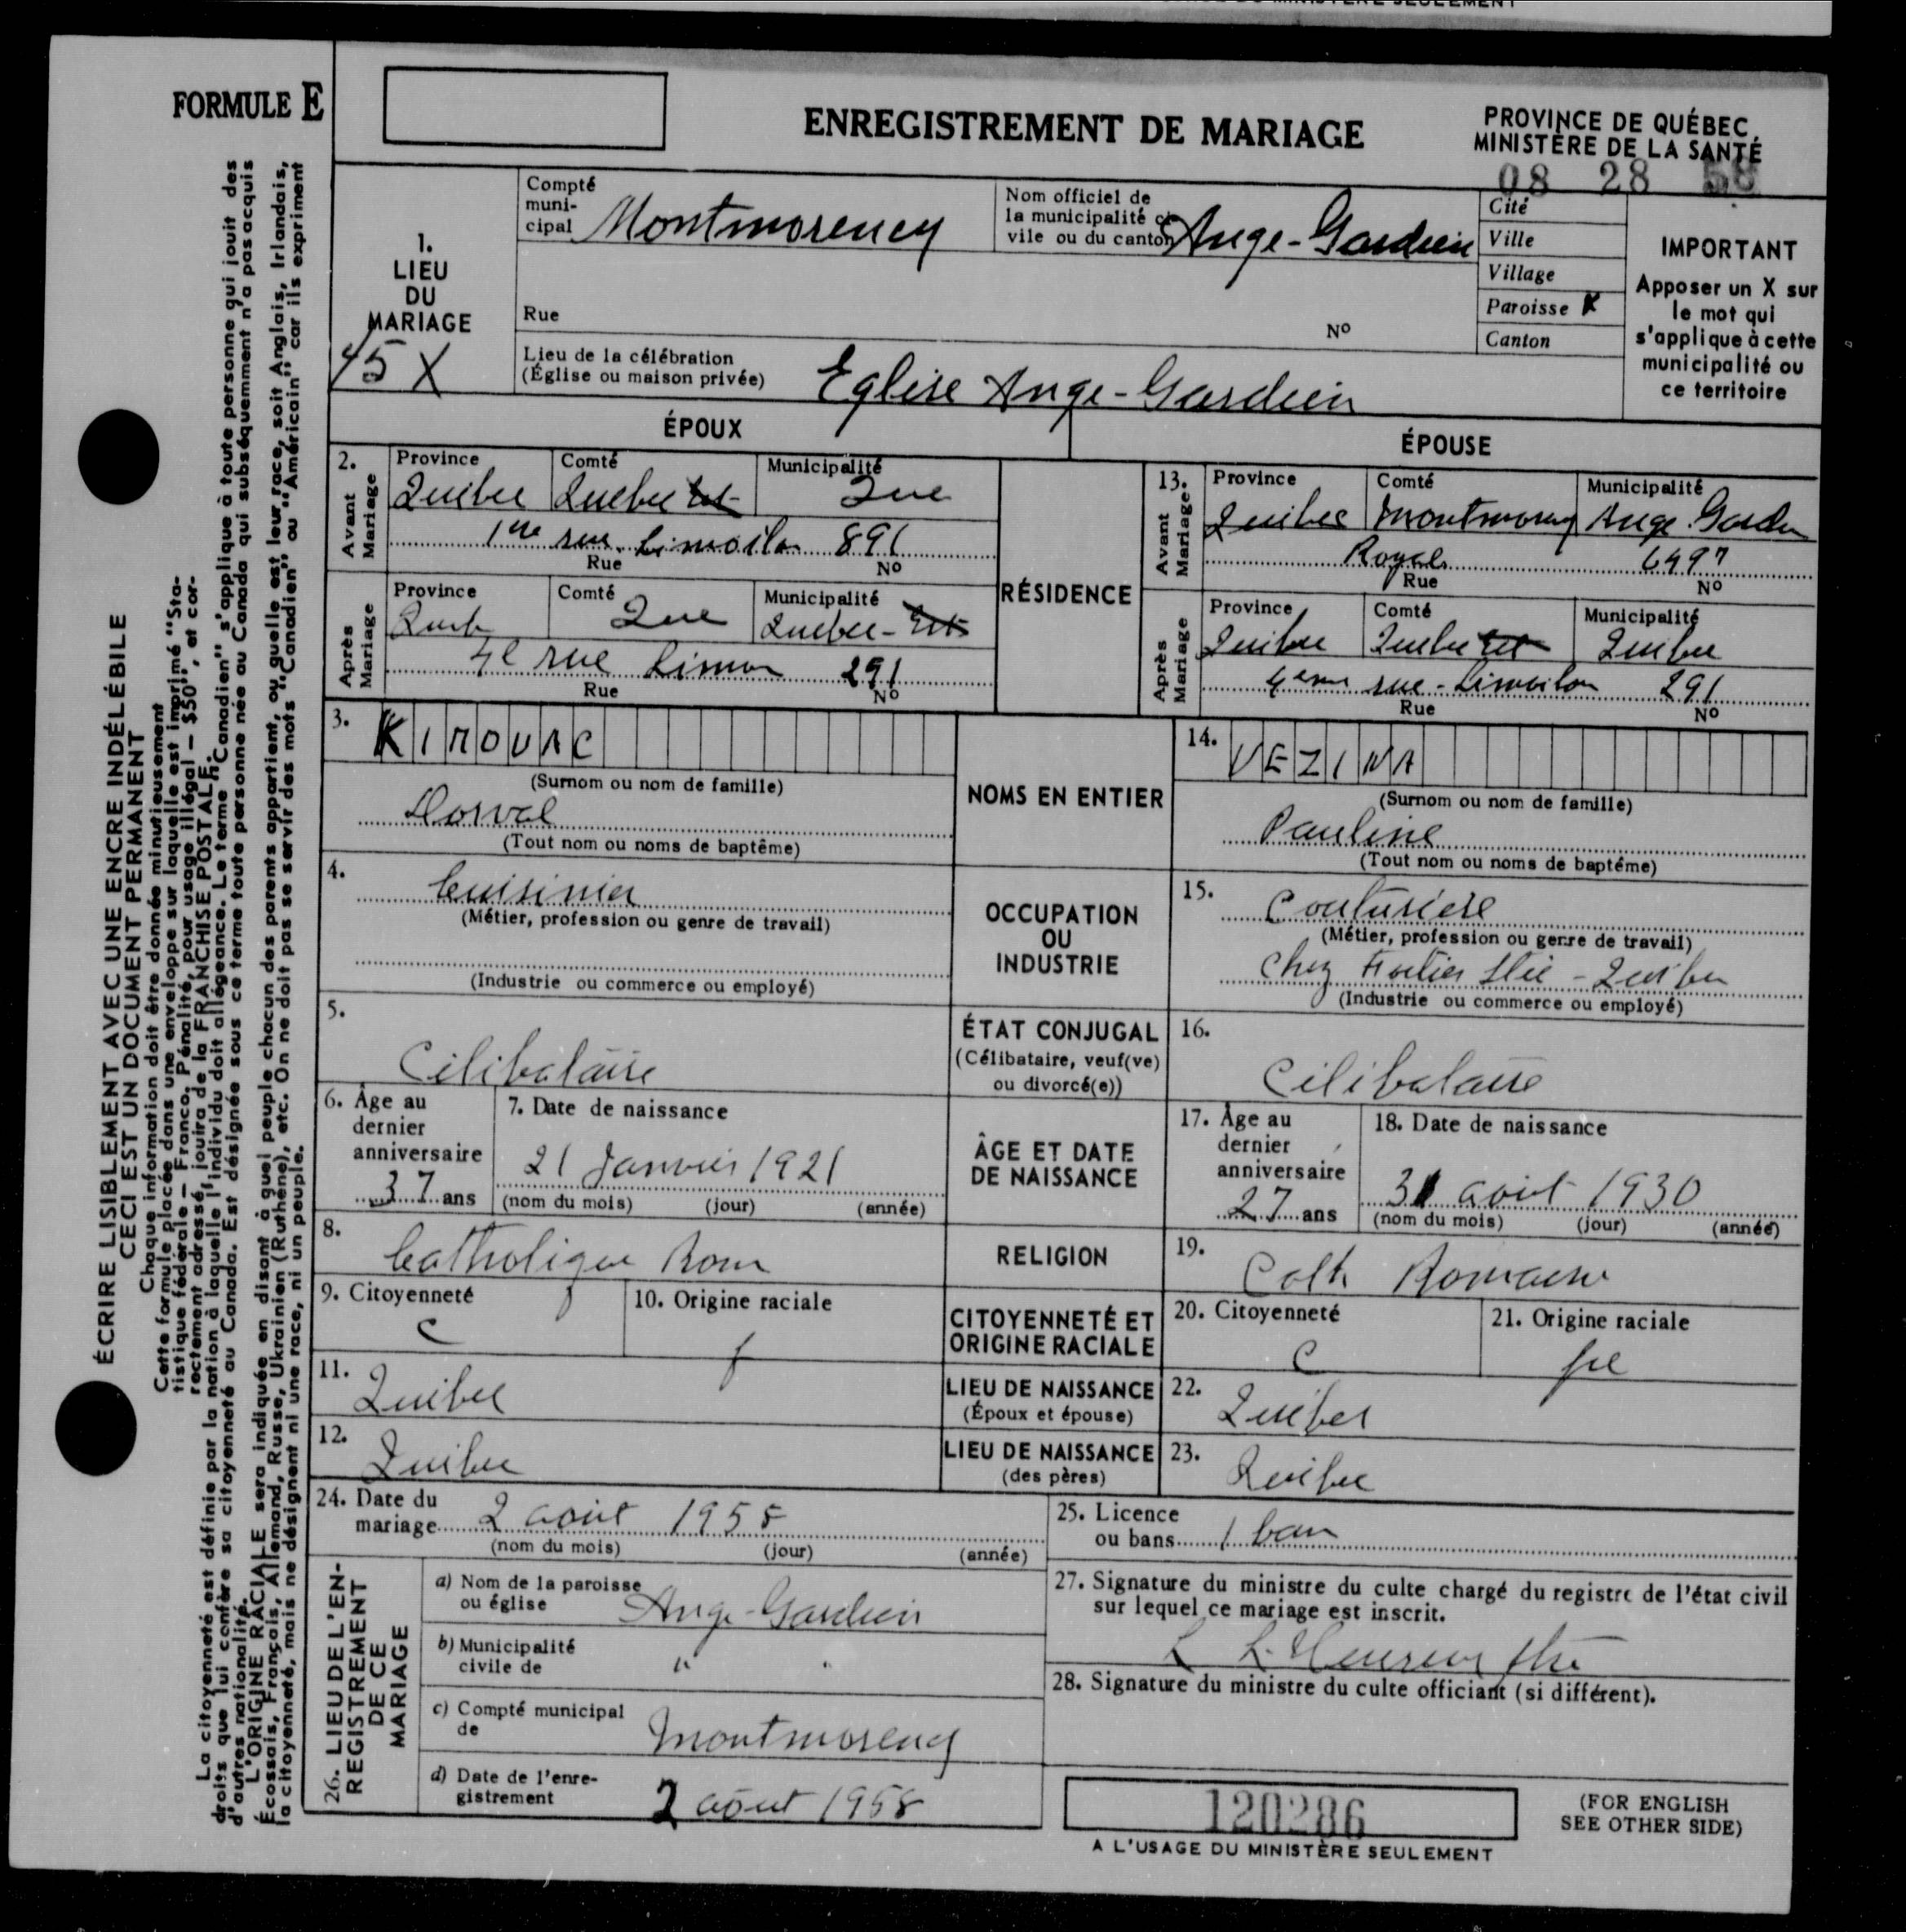 FORMULE E
ENREGISTREMENT DE MARIAGE
PROVINCE DE QUÉBEC
MINISTÈRE DE LA SANTÉ
08 28 58
1.
LIEU
DU
MARIAGE
45 X
Compté
muni-
cipal
Montmorency
Nom officiel de
la municipalité ci-
vile ou du canton
Ange-Gardien
Cité
Ville
Village
Paroisse X
Canton
IMPORTANT
Apposer un X sur
le mot qui
s'applique à cette
municipalité ou
ce territoire
Rue
No
Lieu de la célébration
(Église ou maison privée)
Eglise Ange-Gardien
ÉPOUX
ÉPOUSE
2.
Avant
Mariage
Province
Comté
Municipalité
Quebec
Quebec Est
Que
1ere rue Limoilou 891
Rue
No
Après
Mariage
Province
Comté
Municipalité
Queb
Que
Quebec-Est
4e rue Limou 291
Rue
No
RÉSIDENCE
13.
Avant
Mariage
Province
Comté
Municipalité
Quebec
Montmorency
Ange Gardien
Royale 6497
Rue
No
Après
Mariage
Province
Comté
Municipalité
Quebec
Quebec Est
Quebec
4eme rue - Limoilou 291
Rue
No
3.
KIROUAC
(Surnom ou nom de famille)
Dorval
(Tout nom ou noms de baptême)
NOMS EN ENTIER
14.
VEZINA
(Surnom ou nom de famille)
Pauline
(Tout nom ou noms de baptême)
4.
Cuisinier
(Métier, profession ou genre de travail)
(Industrie ou commerce ou employé)
OCCUPATION
OU
INDUSTRIE
15.
Couturiere
(Métier, profession ou genre de travail)
Chez - Quebec
(Industrie ou commerce ou employé)
5.
Célibataire
ÉTAT CONJUGAL
(Célibataire, veuf(ve)
ou divorcé(e))
16.
Célibataire
6. Âge au
dernier
anniversaire
37 ans
7. Date de naissance
21 Janvier 1921
(nom du mois) (jour) (année)
ÂGE ET DATE
DE NAISSANCE
17. Âge au
dernier
anniversaire
27 ans
18. Date de naissance
31 août 1930
(nom du mois) (jour) (année)
8.
Catholique Rom
RELIGION
19.
Cath Romaine
9. Citoyenneté
C
10. Origine raciale
f
CITOYENNETÉ ET
ORIGINE RACIALE
20. Citoyenneté
C
21. Origine raciale
11.
Quebec
LIEU DE NAISSANCE
(Époux et épouse)
22.
Quebec
12.
Quebec
LIEU DE NAISSANCE
(des pères)
23.
Quebec
24. Date du
mariage
2 août 1958
(nom du mois) (jour) (année)
25. Licence
ou bans
1 ban
26. LIEU DE L'EN-
REGISTREMENT
DE CE
MARIAGE
a) Nom de la paroisse
ou église
Ange-Gardien
b) Municipalité
civile de
" "
c) Compté municipal
de
Montmorency
d) Date de l'enre-
gistrement
2 août 1958
27. Signature du ministre du culte chargé du registre de l'état civil
sur lequel ce mariage est inscrit.
L L'Heureux ptre
28. Signature du ministre du culte officiant (si différent).
120286
A L'USAGE DU MINISTÈRE SEULEMENT
(FOR ENGLISH
SEE OTHER SIDE)
ÉCRIRE LISIBLEMENT AVEC UNE ENCRE INDÉLÉBILE
CECI EST UN DOCUMENT PERMANENT
Chaque information doit être donnée minutieusement
Cette formule placée dans une enveloppe sur laquelle est imprimé "Sta-
tistique fédérale — Franco. Pénalité, pour usage illégal — $50", et cor-
rectement adressé, jouira de la FRANCHISE POSTALE.
La citoyenneté est définie par la nation à laquelle l'individu doit allégeance. Le terme "Canadien" s'applique à toute personne qui jouit des
droits que lui confère sa citoyenneté au Canada. Est désignée sous ce terme toute personne née au Canada qui subséquemment n'a pas acquis
d'autres nationalité.
L'ORIGINE RACIALE sera indiquée en disant à quel peuple chacun des parents appartient, ou quelle est leur race, soit Anglais, Irlandais,
Écossais, Français, Allemand, Russe, Ukrainien (Ruthène), etc. On ne doit pas se servir des mots "Canadien" ou "Américain" car ils expriment
la citoyenneté, mais ne désignent ni une race, ni un peuple.